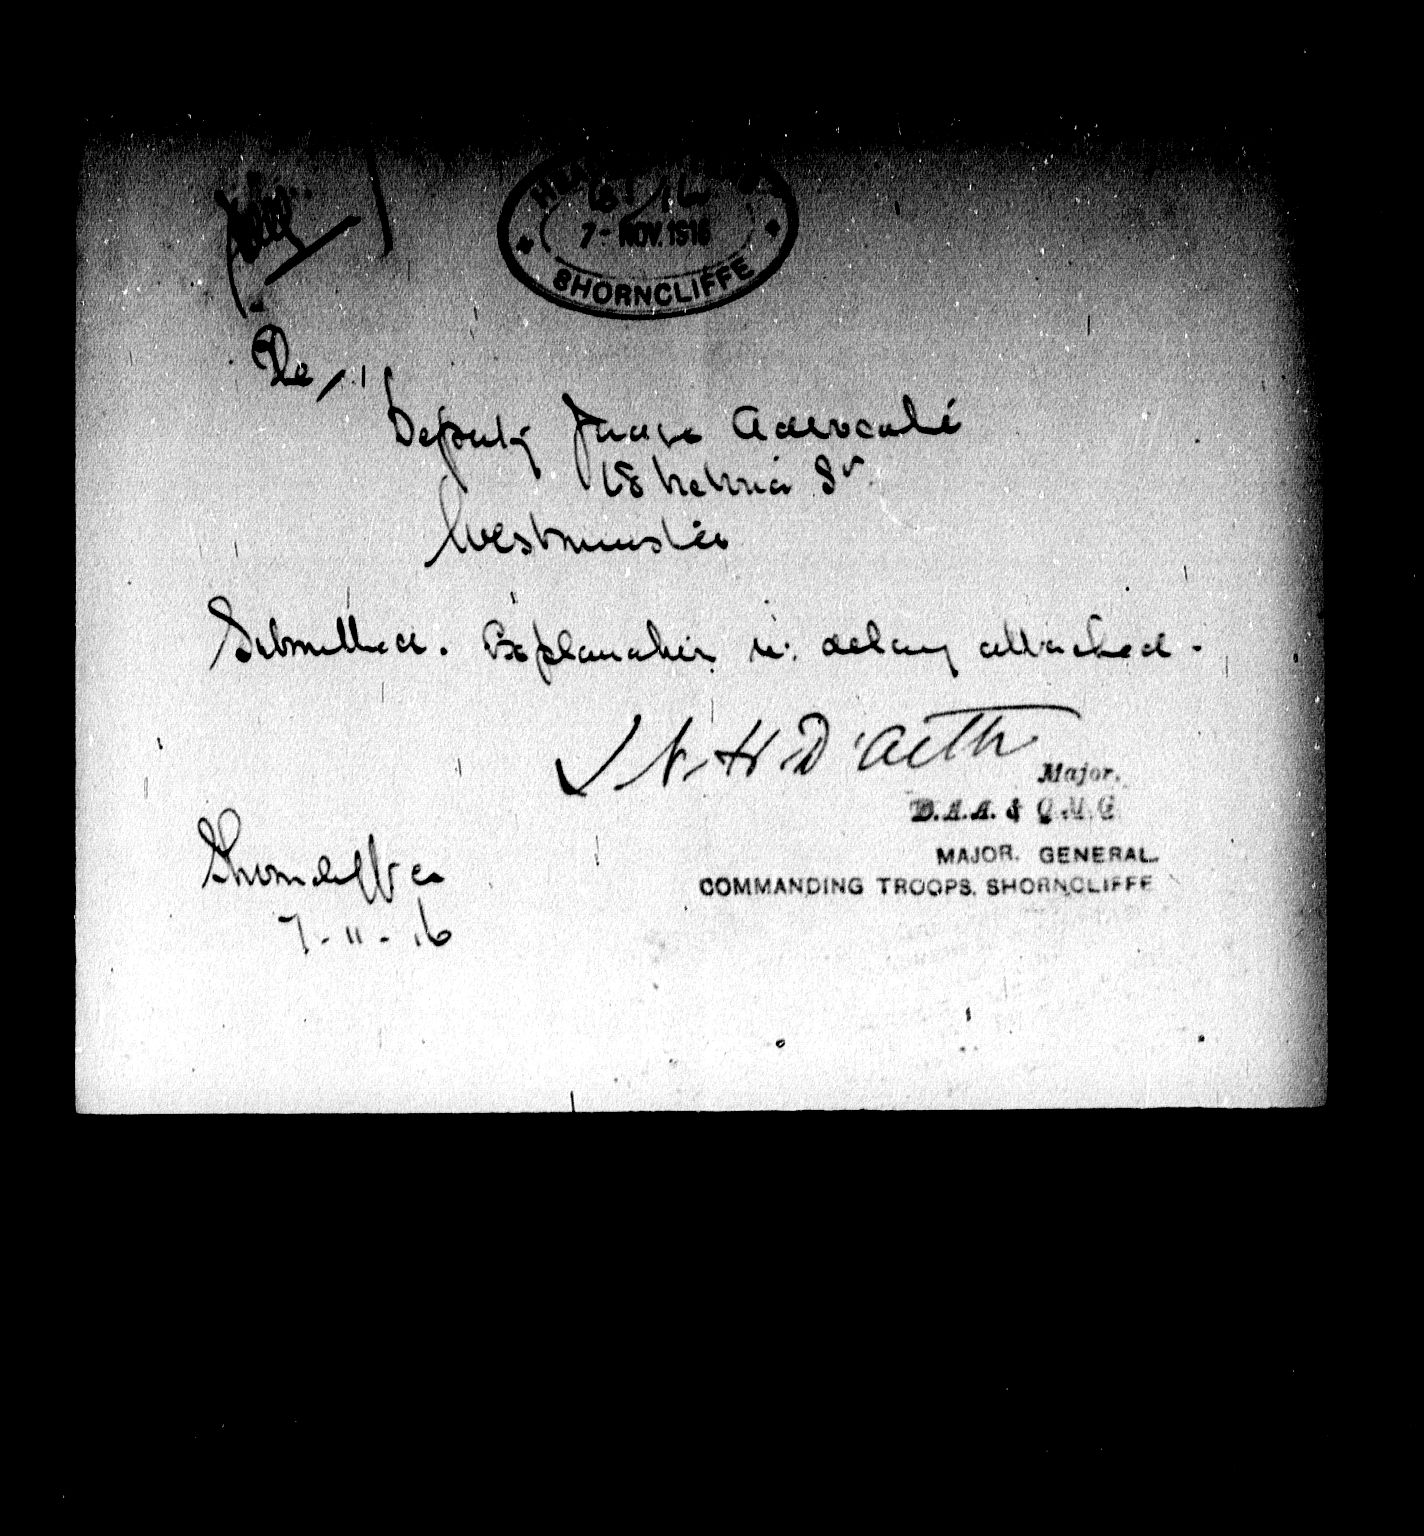 7 - NOV. 1916
SHORNCLIFFE
The
Deputy Judge Advocate
Victoria St
Westminster
Submitted. Explanation re: delay attached.
D'aeth
Major.
D.A.A. & Q.M.G.
MAJOR. GENERAL.
COMMANDING TROOPS, SHORNCLIFFE
Shorncliffe
7-11-16